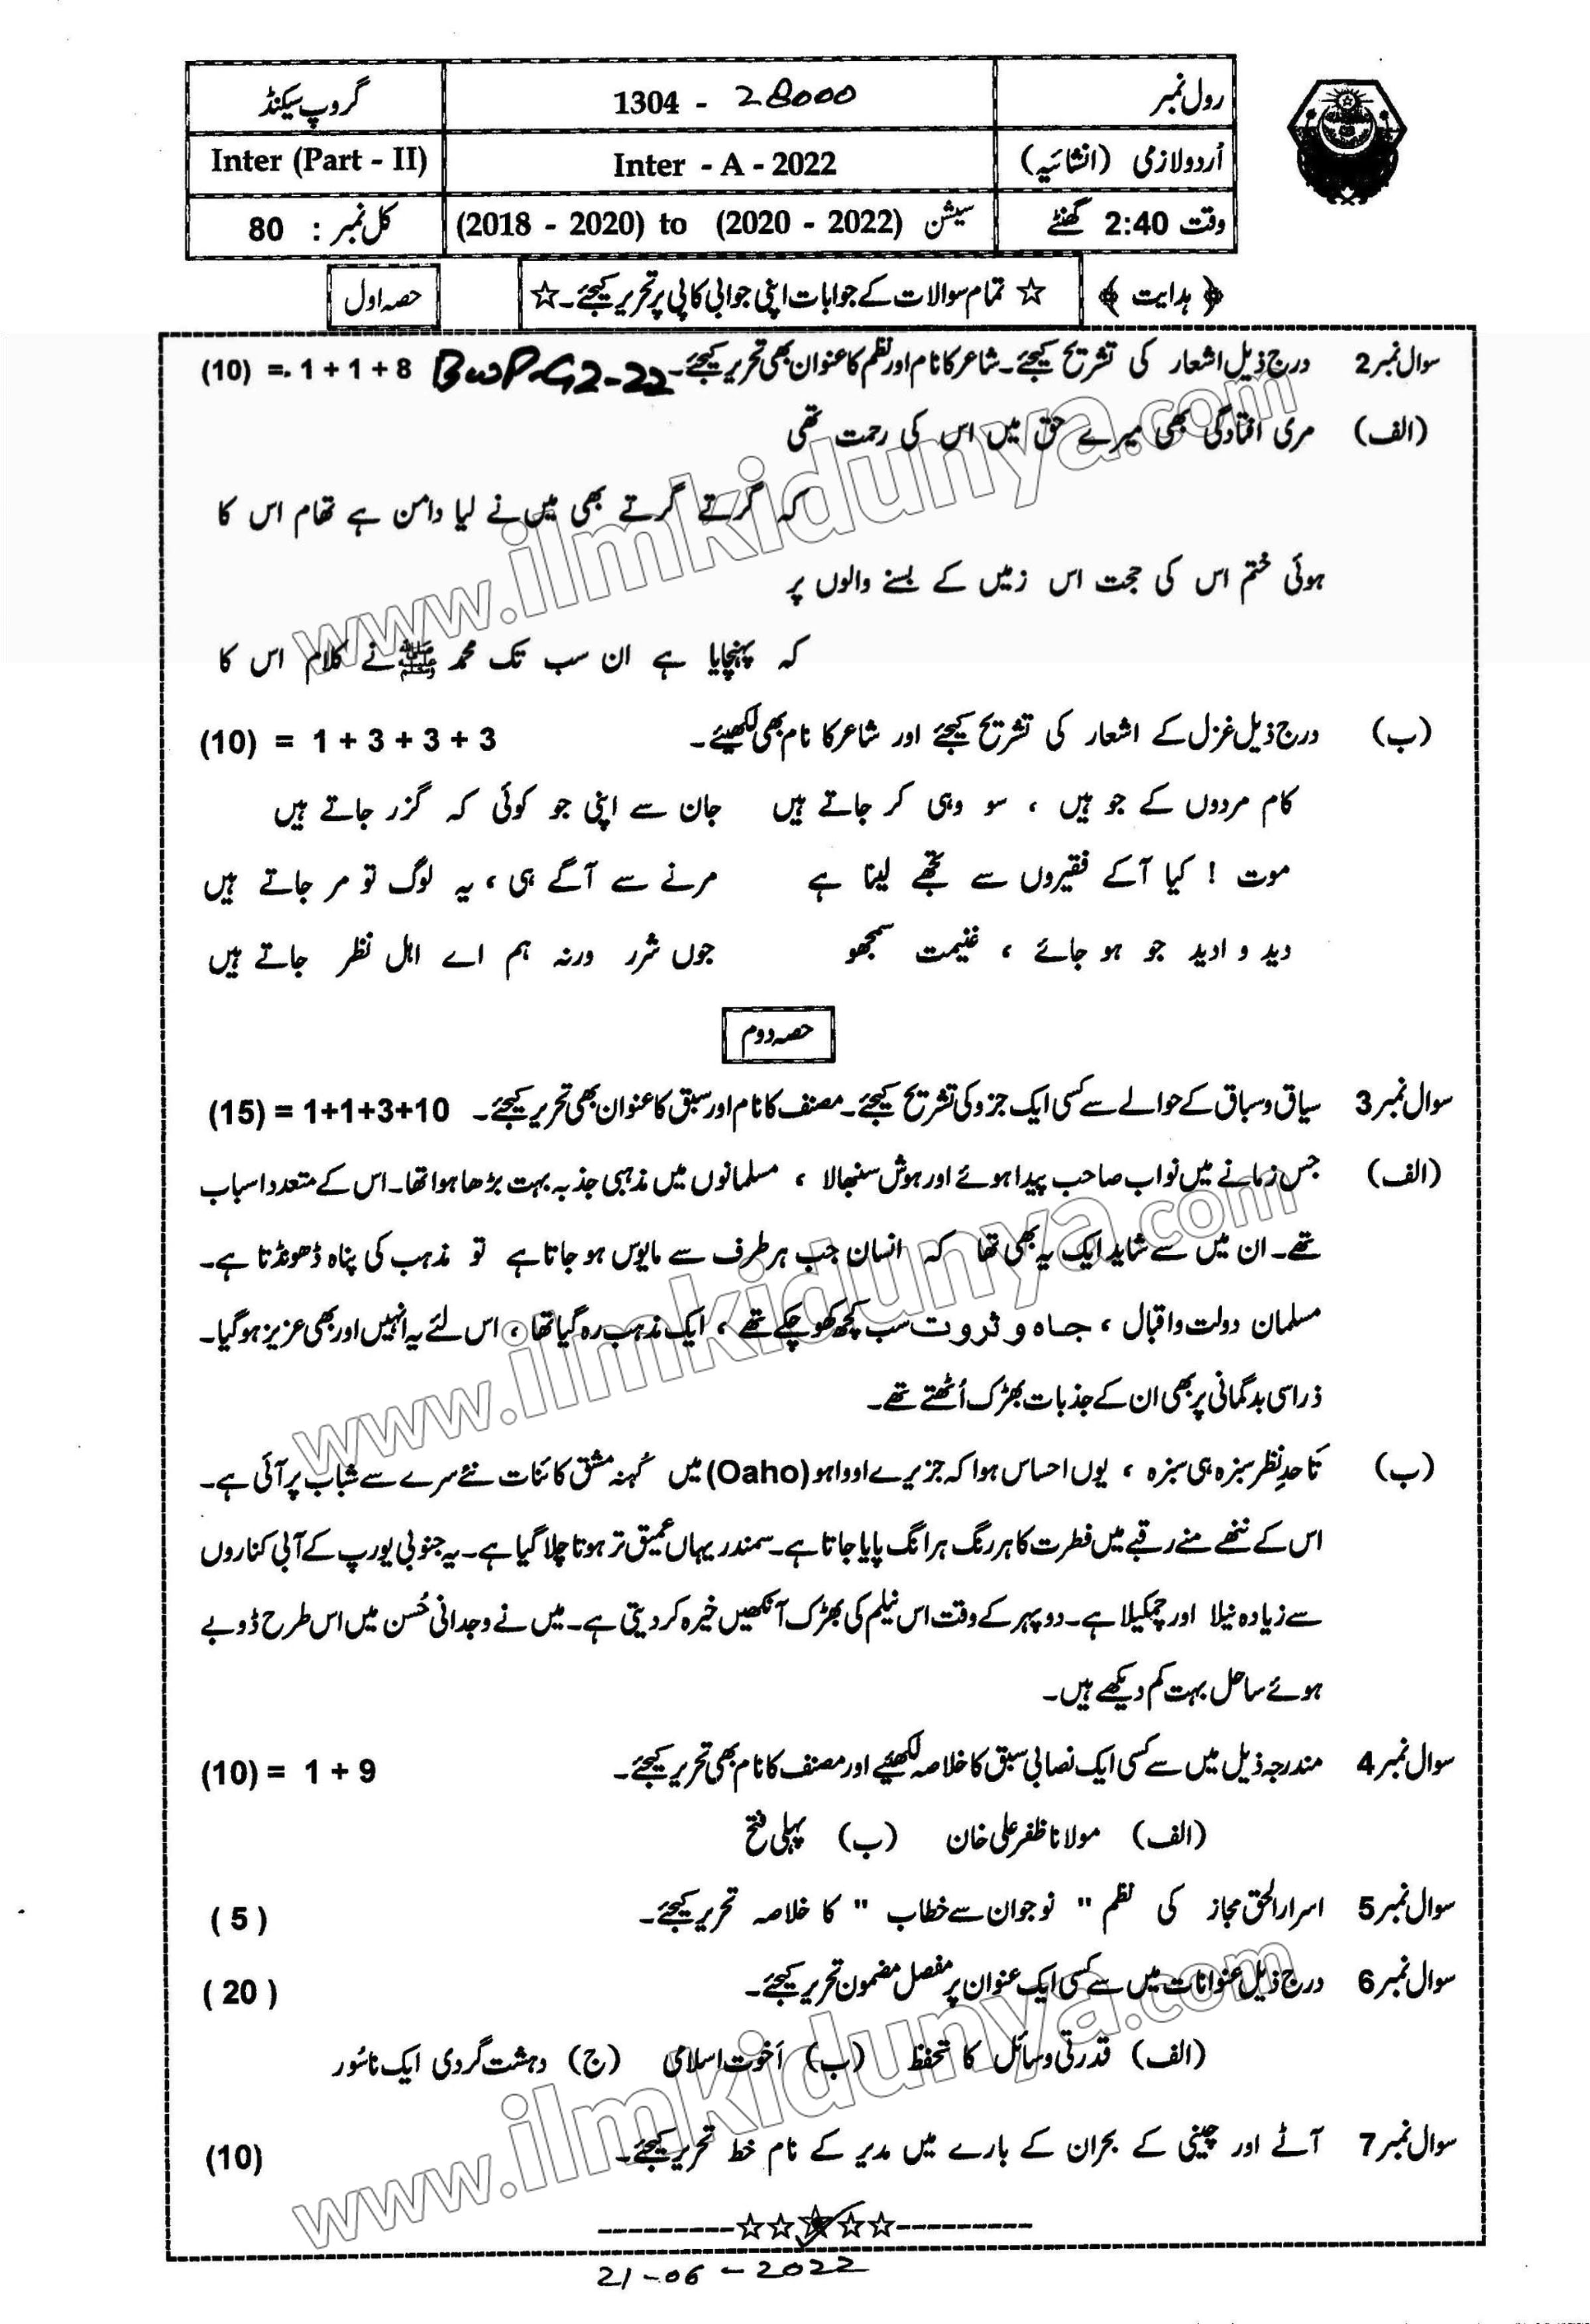 رول نمبر 1304 - 28000 گروپ سیکنڈ
اُردو لازمی (انشائیہ) Inter - A - 2022 Inter (Part - II)
وقت 2:40 گھنٹے سیشن (2018 - 2020) to (2020 - 2022) کل نمبر : 80
﴿ ہدایت ﴾ ☆ تمام سوالات کے جوابات اپنی جوابی کاپی پر تحریر کیجئے۔ ☆ حصہ اول
سوال نمبر 2 درج ذیل اشعار کی تشریح کیجئے۔ شاعر کا نام اور نظم کا عنوان بھی تحریر کیجئے۔ BWP-G2-22 (10) =. 1 + 1 + 8
(الف) مری افتادگی بھی میرے حق میں اس کی رحمت تھی
کہ گرتے گرتے بھی میں نے لیا دامن ہے تھام اس کا
ہوئی ختم اس کی حجت اس زمیں کے بسنے والوں پر
کہ پہنچایا ہے ان سب تک محمد ﷺ نے کلام اس کا
(ب) درج ذیل غزل کے اشعار کی تشریح کیجئے اور شاعر کا نام بھی لکھیئے۔ (10) = 1 + 3 + 3 + 3
کام مردوں کے جو ہیں ، سو وہی کر جاتے ہیں جان سے اپنی جو کوئی کہ گزر جاتے ہیں
موت ! کیا آ کے فقیروں سے تجھے لینا ہے مرنے سے آگے ہی ، یہ لوگ تو مر جاتے ہیں
دید و ادید جو ہو جائے ، غنیمت سمجھو جوں شرر ورنہ ہم اے اہل نظر جاتے ہیں
حصہ دوم
سوال نمبر 3 سیاق و سباق کے حوالے سے کسی ایک جزو کی تشریح کیجئے۔ مصنف کا نام اور سبق کا عنوان بھی تحریر کیجئے۔ (15) = 1+1+3+10
(الف) جس زمانے میں نواب صاحب پیدا ہوئے اور ہوش سنبھالا ، مسلمانوں میں مذہبی جذبہ بہت بڑھا ہوا تھا۔ اس کے متعدد اسباب
تھے۔ ان میں سے شاید ایک یہ بھی تھا کہ انسان جب ہر طرف سے مایوس ہو جاتا ہے تو مذہب کی پناہ ڈھونڈتا ہے۔
مسلمان دولت و اقبال ، جاہ و ثروت سب کچھ کھو چکے تھے ، ایک مذہب رہ گیا تھا ، اس لئے یہ انہیں اور بھی عزیز ہو گیا۔
ذرا سی بدگمانی پر بھی ان کے جذبات بھڑک اُٹھتے تھے۔
(ب) تا حدِ نظر سبزہ ہی سبزہ ، یوں احساس ہوا کہ جزیرے اوواہو (Oaho) میں کُہنہ مشق کائنات نئے سرے سے شباب پر آئی ہے۔
اس کے ننھے منے رقبے میں فطرت کا ہر رنگ ہر انگ پایا جاتا ہے۔ سمندر یہاں عمیق تر ہوتا چلا گیا ہے۔ یہ جنوبی یورپ کے آبی کناروں
سے زیادہ نیلا اور چمکیلا ہے۔ دوپہر کے وقت اس نیلم کی بھڑک آنکھیں خیرہ کر دیتی ہے۔ میں نے وجدانی حُسن میں اس طرح ڈوبے
ہوئے ساحل بہت کم دیکھے ہیں۔
سوال نمبر 4 مندرجہ ذیل میں سے کسی ایک نصابی سبق کا خلاصہ لکھیئے اور مصنف کا نام بھی تحریر کیجئے۔ (10) = 1 + 9
(الف) مولانا ظفر علی خان (ب) پہلی فتح
سوال نمبر 5 اسرار الحق مجاز کی نظم " نوجوان سے خطاب " کا خلاصہ تحریر کیجئے۔ ( 5 )
سوال نمبر 6 درج ذیل عنوانات میں سے کسی ایک عنوان پر مفصل مضمون تحریر کیجئے۔ ( 20 )
(الف) قدرتی وسائل کا تحفظ (ب) اُخوت اسلامی (ج) دہشت گردی ایک ناسُور
سوال نمبر 7 آٹے اور چینی کے بحران کے بارے میں مدیر کے نام خط تحریر کیجئے۔ (10)
---------☆☆☆☆☆---------
21-06-2022
www.ilmkidunya.com
www.ilmkidunya.com
www.ilmkidunya.com